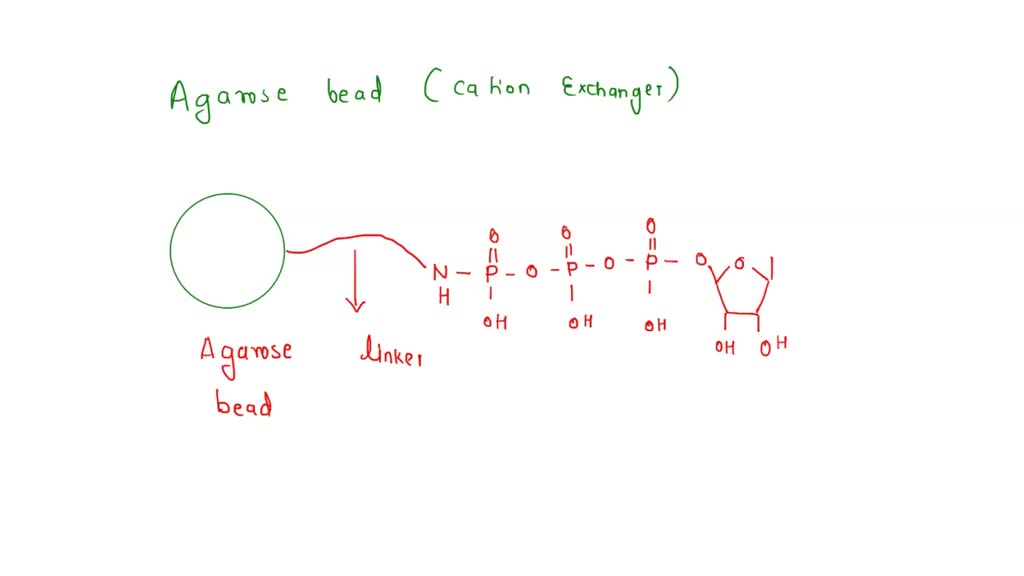 Agarose bead (cation Exchanger)
O O O
N - P - O - P - O - P - O O
H
OH OH OH
OH OH
Agarose linker
bead